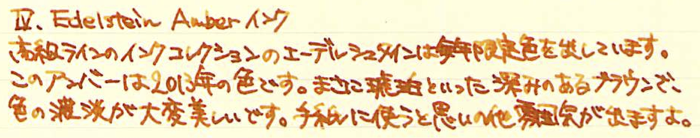 IV. Edelstein Amber インク
高級ラインのインクコレクションのエーデルシュタインは毎年限定色を出しています。
このアンバーは2013年の色です。まさに琥珀といった深みのあるブラウンで、
色の濃淡が大変美しいです。手紙に使うと思いの他雰囲気が出ますよ。